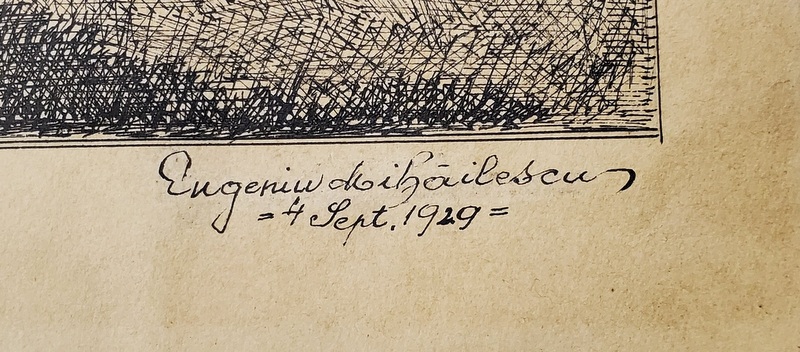 Eugeniu Mihăilescu
= 4 Sept. 1929 =